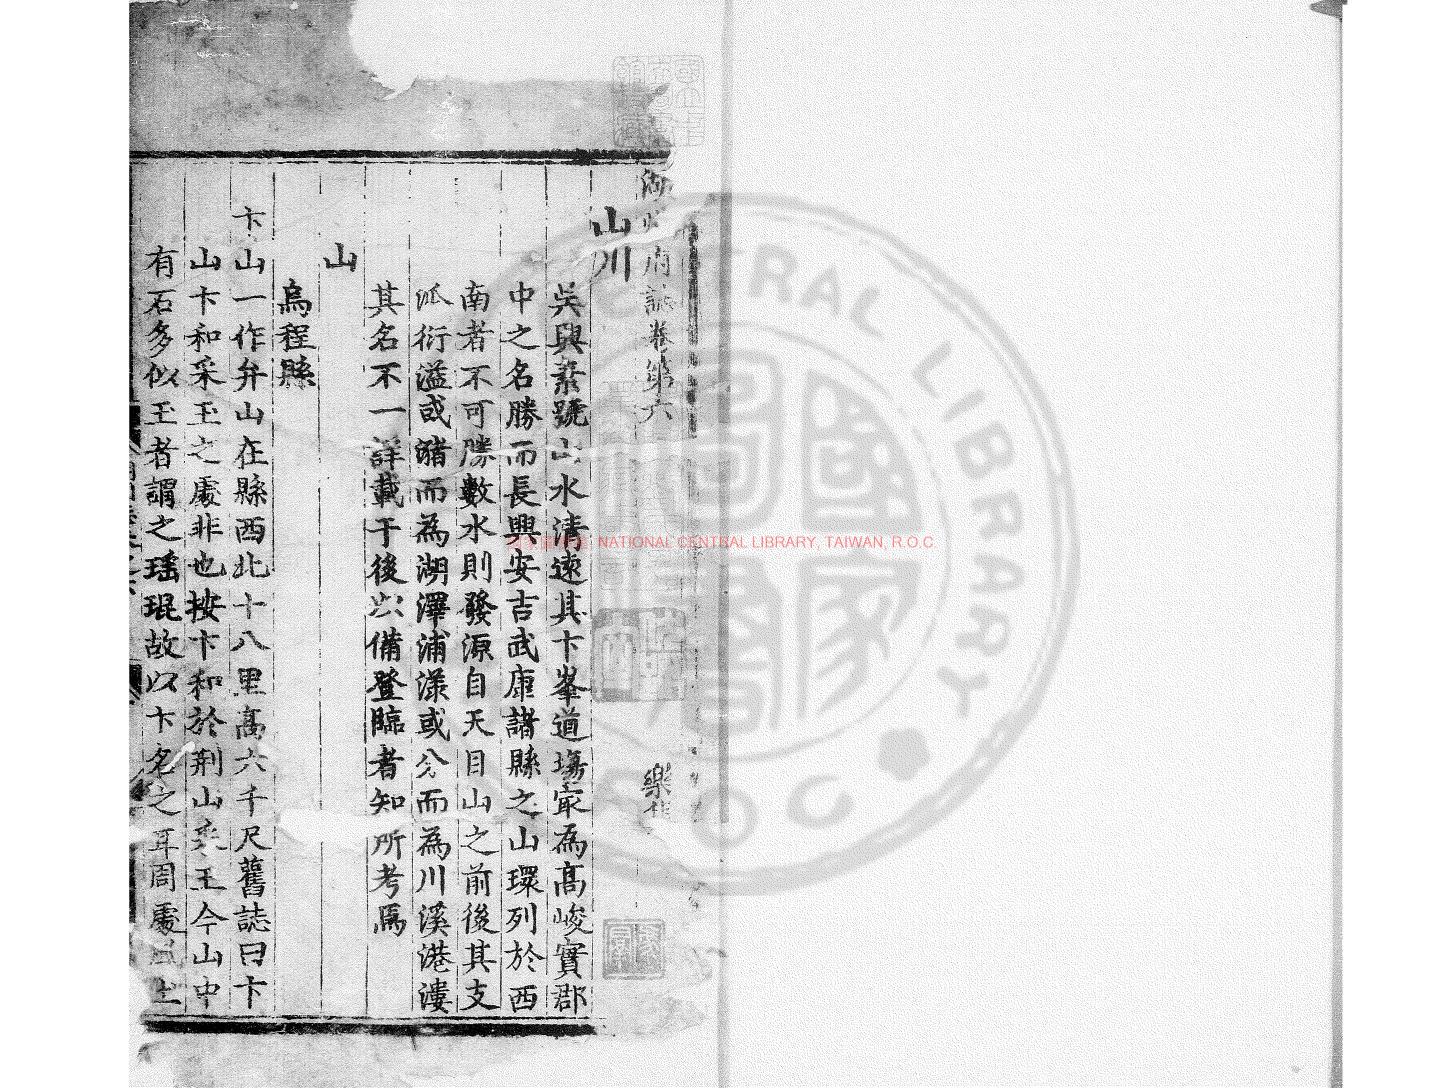 湖州府誌卷第六
樂
山川
吳興素號山水清遠其卞峯道場寂為高峻實郡
中之名勝而長興安吉武康諸縣之山環列於西
南者不可勝數水則發源自天目山之前後其支
派衍溢或瀦而為湖澤浦漾或分而為川溪港漊
其名不一詳載于後以備登臨者知所考焉
山
烏程縣
卞山一作弁山在縣西北十八里高六千尺舊誌曰卞
山卞和采玉之處非也按卞和於荆山采玉今山中
有石多似玉者謂之瑤琨故以卞名之耳周處風土
NATIONAL CENTRAL LIBRARY, TAIWAN, R.O.C.
CENTRAL LIBRARY
R.O.C